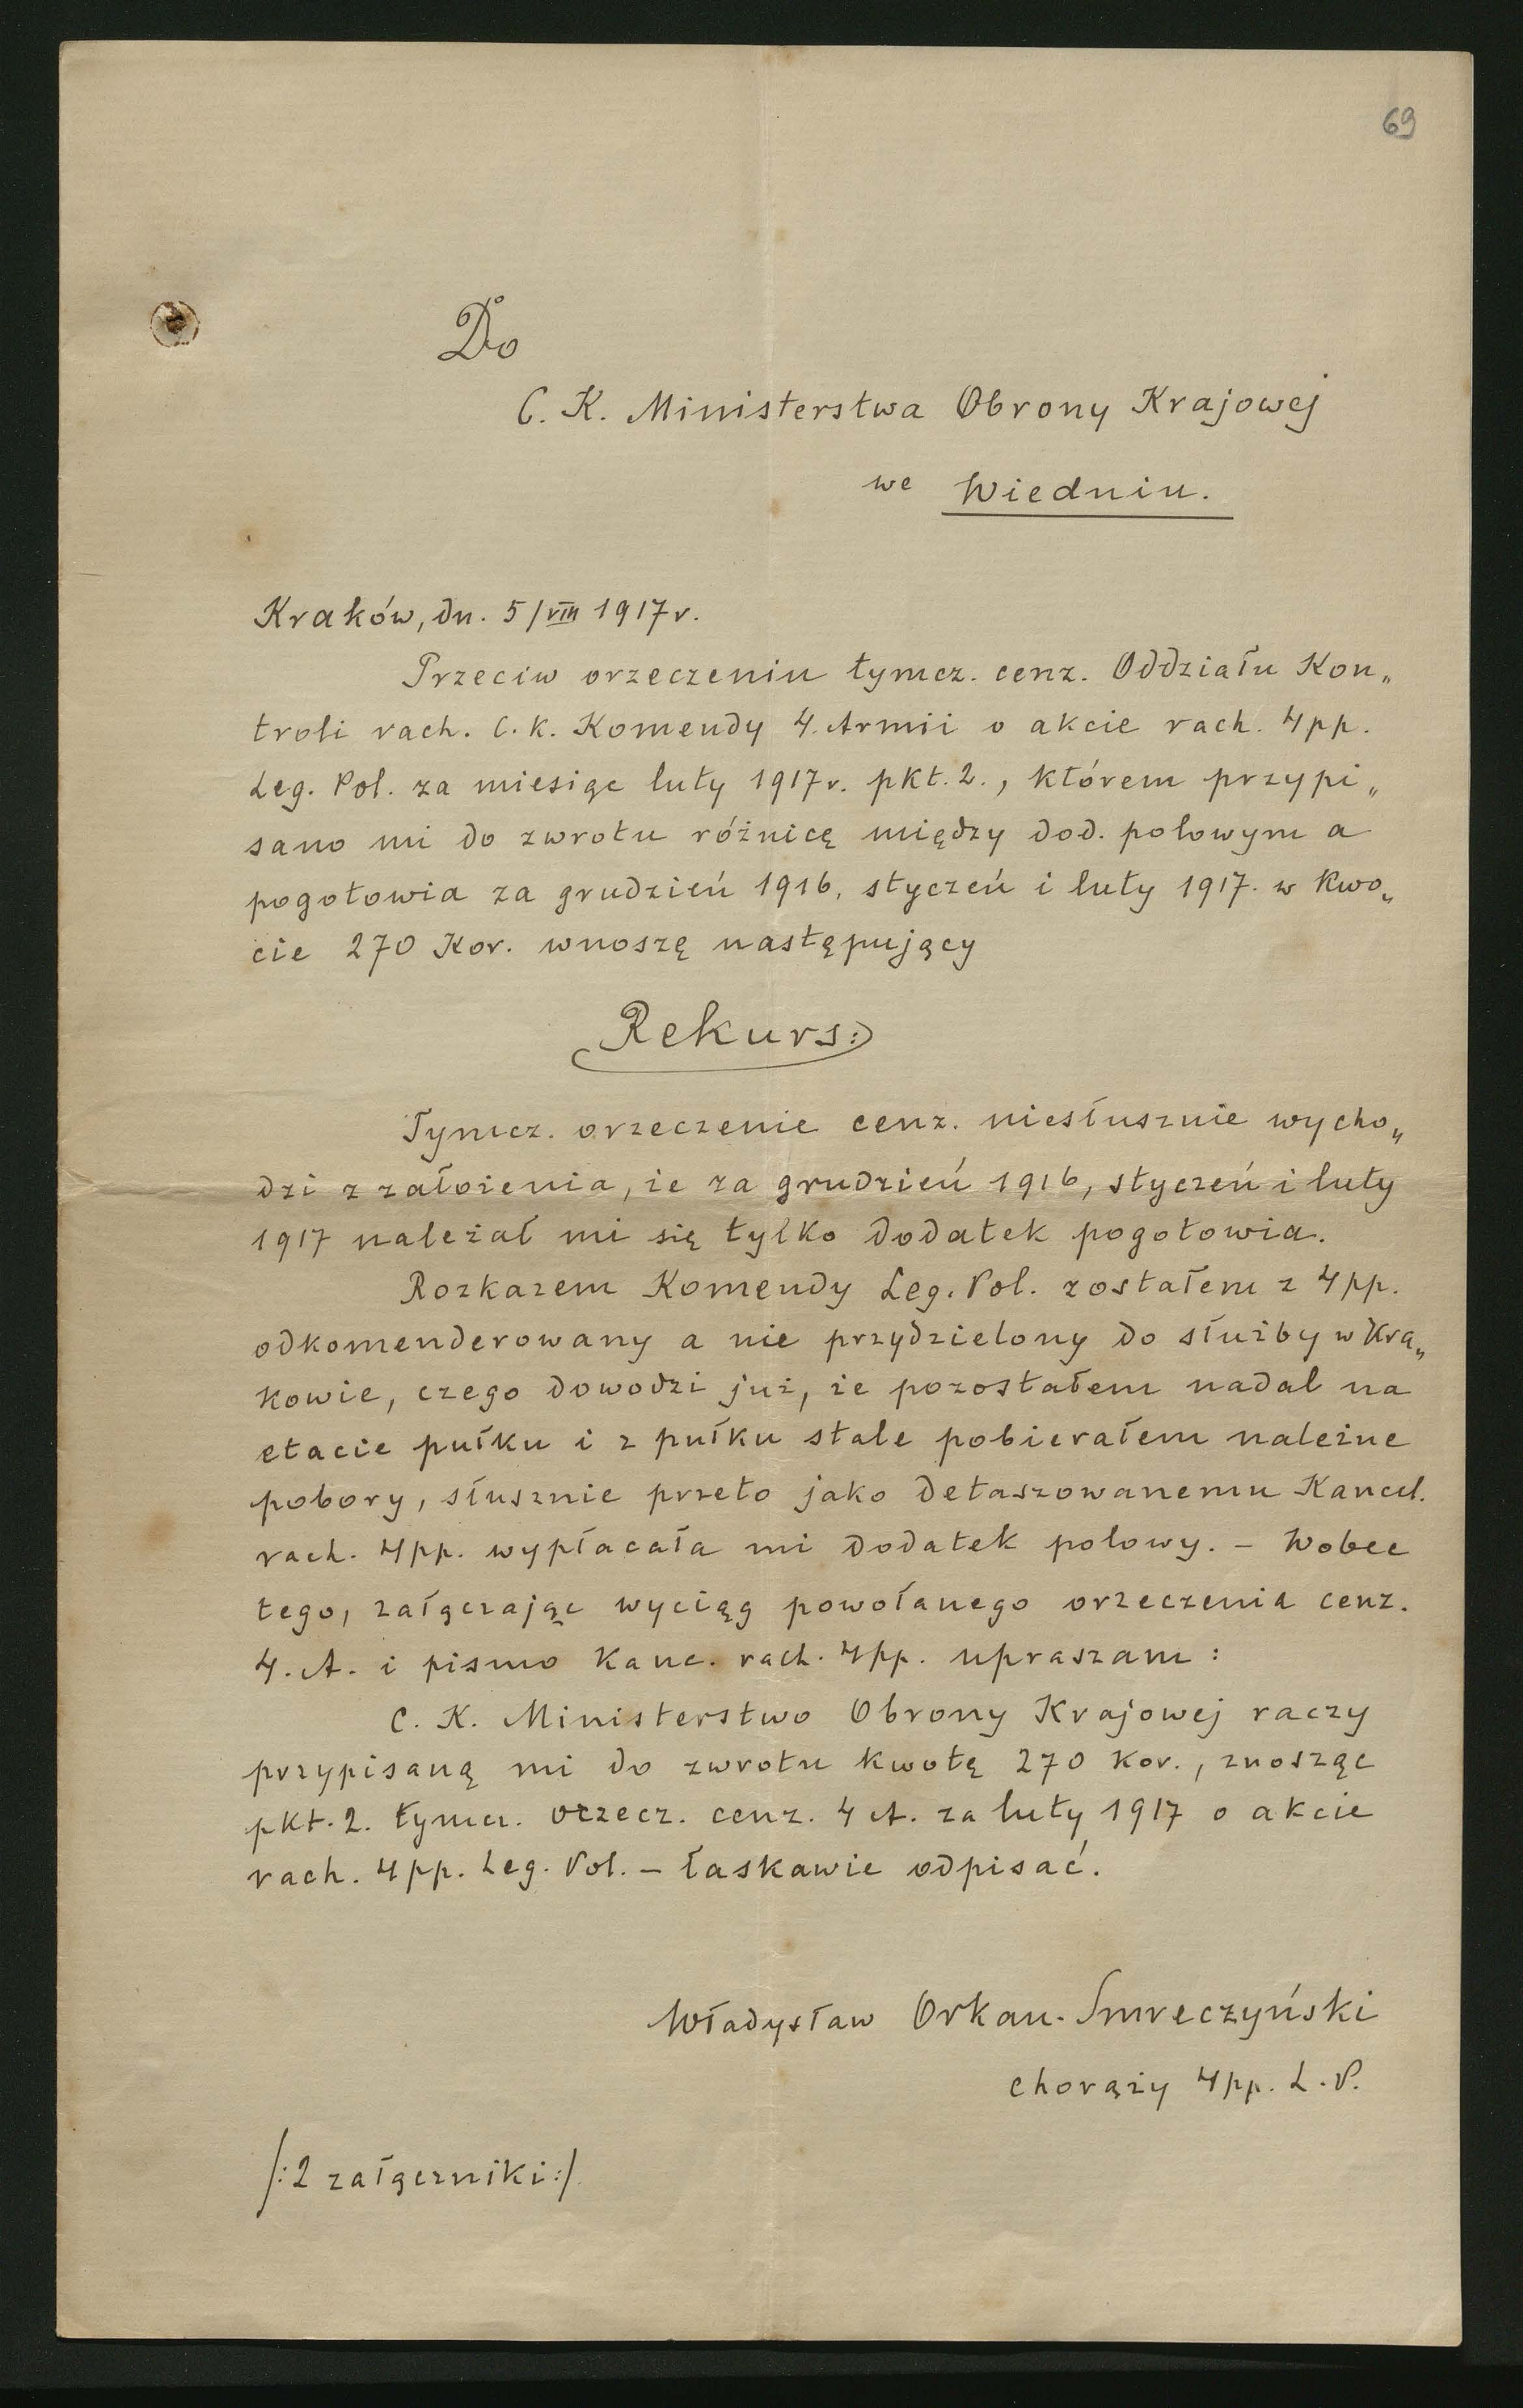 69
Do
C. K. Ministerstwa Obrony Krajowej
we Wiedniu.
Kraków, dn. 5/VIII 1917 r.
Przeciw orzeczeniu tymcz. cenz. Oddziału Kon„
troli rach. C. K. Komendy 4. Armii o akcie rach. 4 pp.
Leg. Pol. za miesiąc luty 1917 r. pkt. 2., którem przypi„
sano mi do zwrotu różnicę między dod. polowym a
pogotowia za grudzień 1916, styczeń i luty 1917. w kwo„
cie 270 Kor. wnoszę następujący
Rekurs:
Tymcz. orzeczenie cenz. niesłusznie wycho„
dzi z założenia, że za grudzień 1916, styczeń i luty
1917 należał mi się tylko dodatek pogotowia.
Rozkazem Komendy Leg. Pol. zostałem z 4 pp.
odkomenderowany a nie przydzielony do służby w Kra„
kowie, czego dowodzi już, że pozostałem nadal na
etacie pułku i z pułku stale pobierałem należne
pobory, słusznie przeto jako detaszowanemu Kancel.
rach. 4 pp. wypłacała mi dodatek polowy. – Wobec
tego, załączając wyciąg powołanego orzeczenia cenz.
4. A. i pismo Kanc. rach. 4 pp. upraszam:
C. K. Ministerstwo Obrony Krajowej raczy
przypisaną mi do zwrotu kwotę 270 Kor., znosząc
pkt. 2. tymcz. orzecz. cenz. 4 A. za luty 1917 o akcie
rach. 4 pp. Leg. Pol. – łaskawie odpisać.
Władysław Orkan-Smreczyński
chorąży 4 pp. L. P.
/: 2 załączniki :/